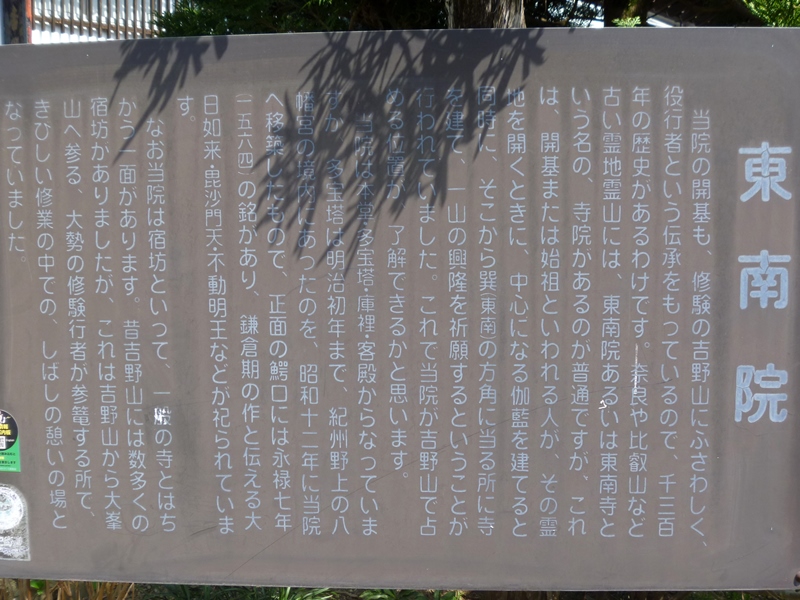 東南院
当院の開基も、修験の吉野山にふさわしく、
役行者という伝承をもっているので、千三百
年の歴史があるわけです。奈良や比叡山など
古い霊地霊山には、東南院あるいは東南寺と
いう名の、寺院があるのが普通ですが、これ
は、開基または始祖といわれる人が、その霊
地を開くときに、中心になる伽藍を建てると
同時に、そこから巽(東南)の方角に当る所に寺
を建て、一山の興隆を祈願するということが
行われていました。これで当院が吉野山で占
める位置が、了解できるかと思います。
当院は本堂・多宝塔・庫裡・客殿からなっていま
すが、多宝塔は明治初年まで、紀州野上の八
幡宮の境内にあったのを、昭和十二年に当院
へ移築したもので、正面の鰐口には永禄七年
(一五六四)の銘があり、鎌倉期の作と伝える大
日如来・毘沙門天・不動明王などが祀られていま
す。
なお当院は宿坊といって、一般の寺とはち
がう一面があります。昔吉野山には数多くの
宿坊がありましたが、これは吉野山から大峯
山へ参る、大勢の修験行者が参篭する所で、
きびしい修業の中での、しばしの憩いの場と
なっていました。